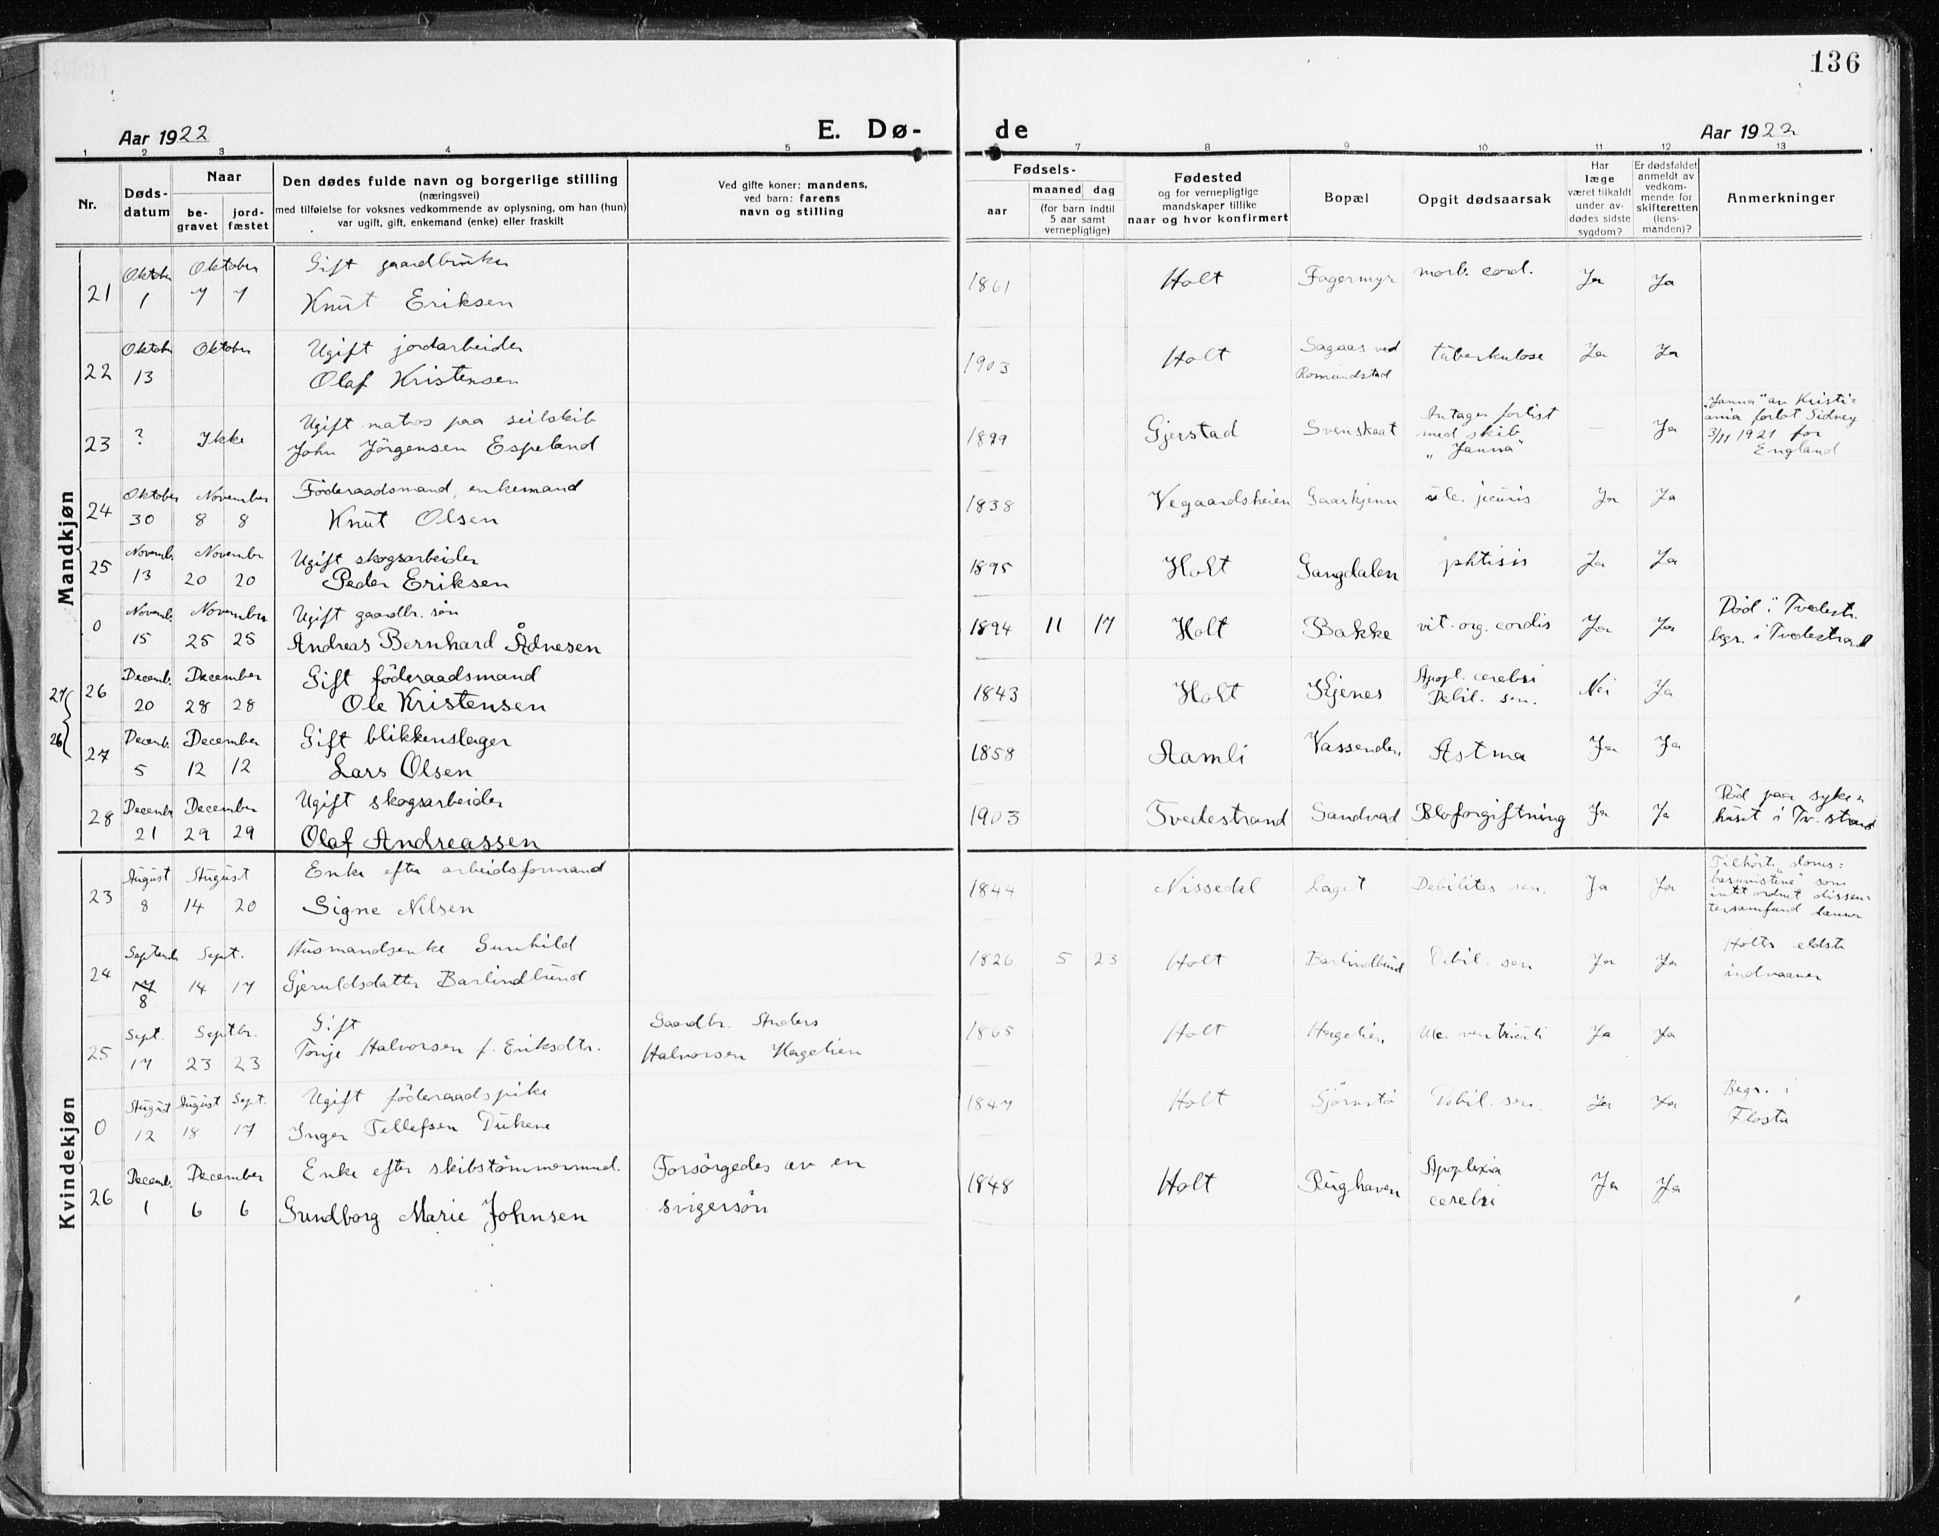 136
Aar 1922
E. Dø-
de
Aar 1922
1 2 3 4 5 6 7 8 9 10 11 12 13
Nr.
Døds-
datum
Naar
be-
gravet
jord-
fæstet
Den dødes fulde navn og borgerlige stilling
(næringsvei)
med tilføielse for voksnes vedkommende av oplysning, om han (hun)
var ugift, gift, enkemand (enke) eller fraskilt
Ved gifte koner: mandens,
ved barn: farens
navn og stilling
Fødsels-
aar
maaned dag
(for barn indtil
5 aar samt
vernepligtige)
Fødested
og for vernepligtige
mandskaper tillike
naar og hvor konfirmert
Bopæl
Opgit dødsaarsak
Har
læge
været tilkaldt
under av-
dødes sidste
sygdom?
Er dødsfaldet
anmeldt av
vedkom-
mende for
skifteretten
(lens-
manden)?
Anmerkninger
Mandkjøn
21 Oktober 1 Oktober 7 7
Gift gaardbruker
Knut Eriksen
1861 Holt Fagermyr morb. cord. Ja Ja
22 Oktob 13 Oktober
Ugift jordarbeider
Olaf Kristensen
1903 Holt Sagaas ved
Romundstad
tuberkulose Ja Ja
23 ? Ikke
Ugift matros paa seilskib
John Jörgensen Espeland
1899 Gjerstad Svenskaat
Antages forlist
med skib
„Janna"
— Ja
„Janna" av Kristi=
ania forlot Sidney
3/11 1921 for
England
24 Oktober 30 November 8 8
Föderaadsmand, enkemand
Knut Olsen
1838 Vegaardsheien Gaaskjenn ulc. Ja Ja
25 Novemb. 13 November 20 20
Ugift skogsarbeider
Peder Eriksen
1895 Holt Gangdalen phtisis Ja Ja
0 Novemb. 15 November 25 25
Ugift gaardbr. sön
Andreas Bernhard Ådnesen
1894 11 17 Holt Bakke vit. org. cordis Ja Ja
Död i Tvedestr.
begr. i Tvedestrand
27
26
26 Decemb. 20 December 28 28
Gift föderaadsmand
Ole Kristensen
1843 Holt Kjenes
Apopl. cerebri
Debil. sen.
Nei Ja
27 Decemb. 5 December 12 12
Gift blikkenslager
Lars Olsen
1858 Aamli Vassenden Astma Ja Ja
28 December 21 December 29 29
Ugift skogsarbeider
Olaf Andreassen
1903 Tvedestrand Sandvad Bloforgiftning Ja Ja
Död paa syke=
huset i Tv. strand
Kvindekjøn
23 August 8 August 14 20
Enke efter arbeidsformand
Signe Nilsen
1844 Nissedal Laget Debilitas sen. Ja Ja
Tilhörte
som
intet ordnet dissen=
tersamfund danner
24 Septemb 17 8 Sept. 14 17
Husmandsenke Gunhild
Gjeruldsdatter Barlindbund
1826 5 23 Holt Barlindbund Debil. sen Ja Ja
Holts eldste
indvaaner
25 Sept. 17 Septbr. 23 23
Gift
Tonje Halvorsen f. Eriksdtr.
Gaardbr. Anders
Halvorsen Hagelien
1865 Holt Hagelien Ulc. ventriculi Ja Ja
0 August 12 August 18 Sept. 17
Ugift föderaadspike
Inger Tellefsen Dukene
1847 Holt Sjörnstö Debil. sen. Ja Ja
Begr. i
Flosta
26 Decemb. 1 December 6 6
Enke efter skibstömmermand.
Gundborg Marie Johnsen
Forsörgedes av en
svigersön
1848 Holt Rughaven
Apoplexia
cerebri
Ja Ja